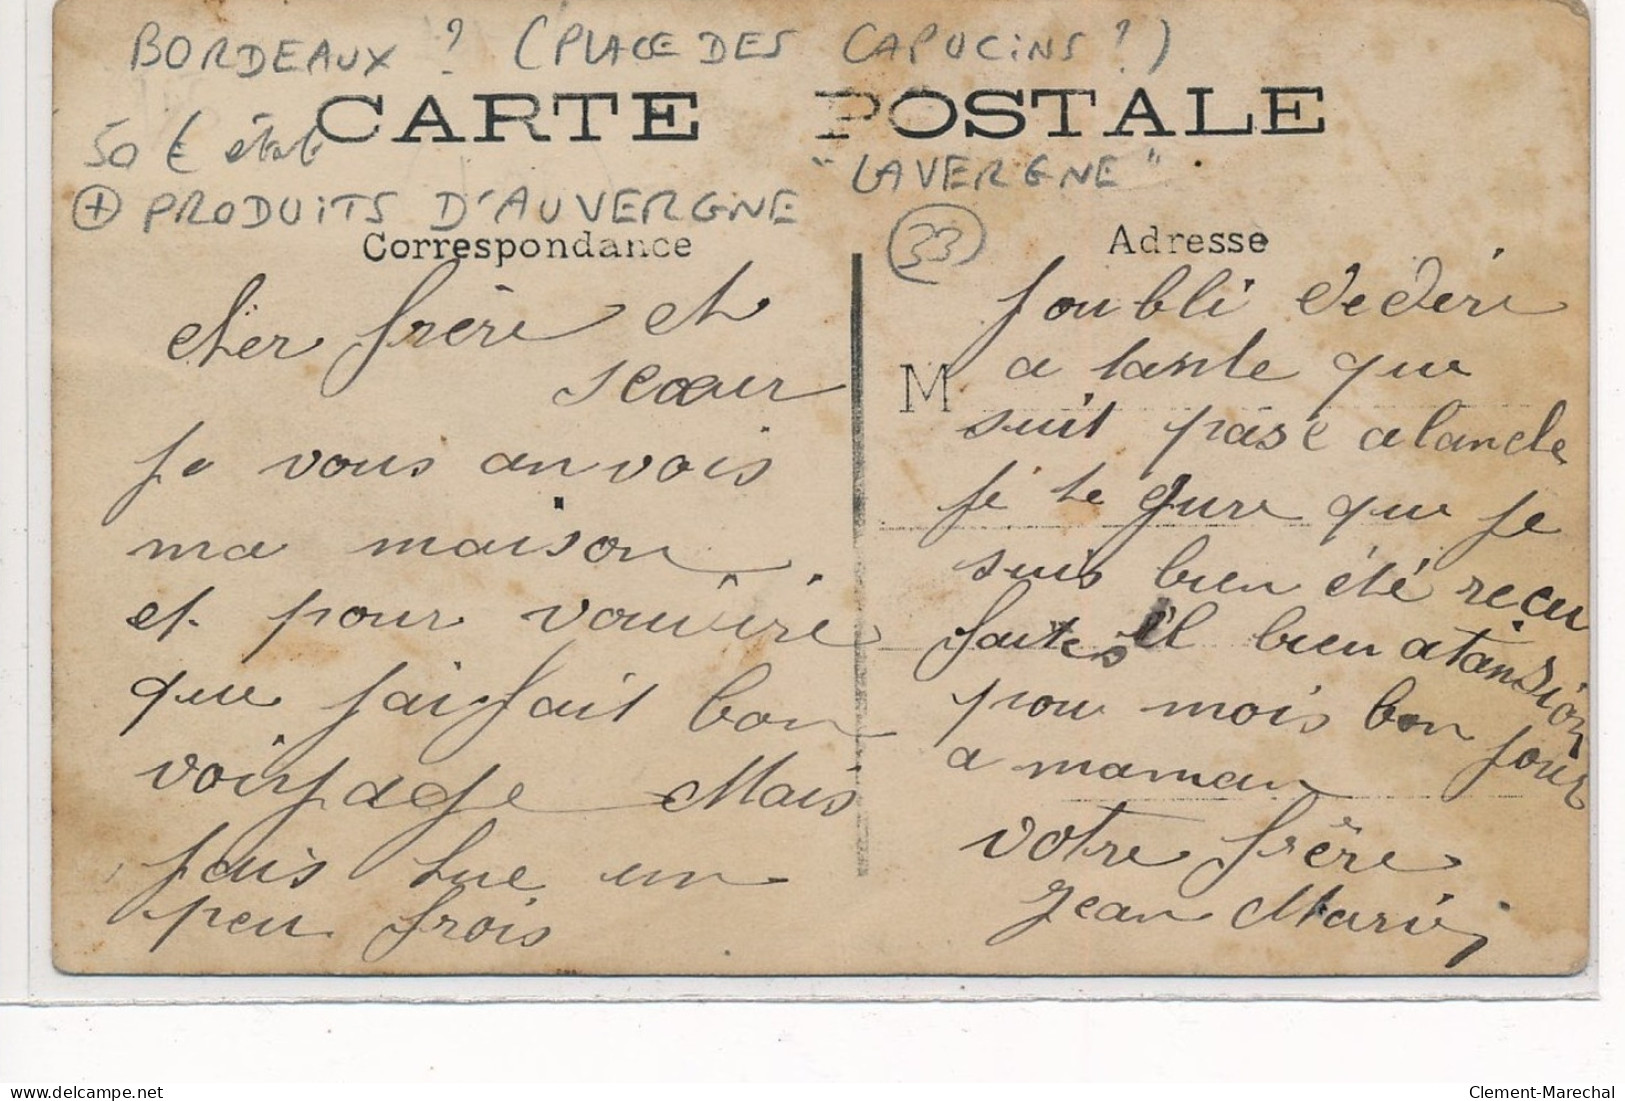 BORDEAUX ? (PLACE DES CAPUCINS ?)
CARTE POSTALE
50 € état
"LAVERGNE"
+ PRODUITS D'AUVERGNE
33
Correspondance
Adresse
M
cher frère et
scœur
je vous anvois
ma maison
et pour voudire
que jai fait bon
voiyage Mais
jais hue un
peu frois
joubli dedire
a tante que
suit pasé alande
je te jure que je
suis bien été reçu
faites il bien atansion
pour mois bon jour
a maman
votre frère
jean Mari
delcampe.net
Clement-Marechal